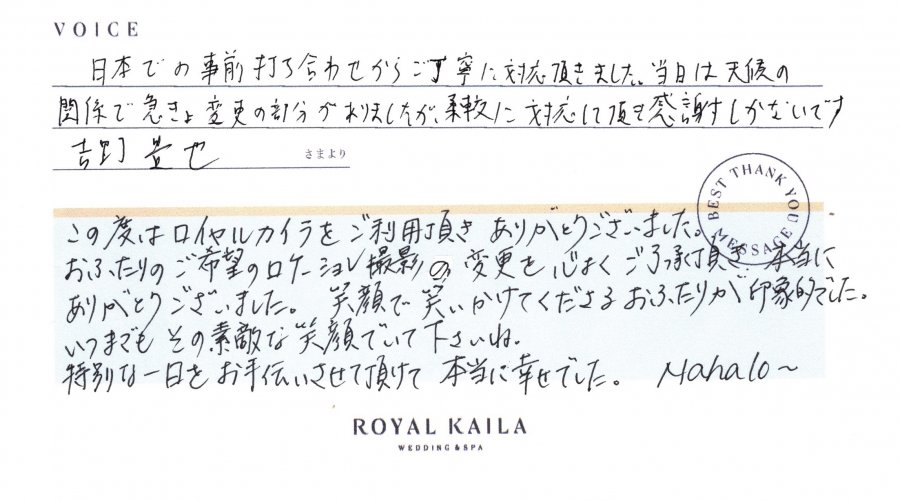 VOICE
日本での事前打ち合わせからご丁寧に対応頂きました。当日は天候の
関係で急きょ変更の部分がありましたが、柔軟に対応して頂き感謝しかないです
吉野 豊也
さまより
BEST THANK YOU MESSAGE
この度はロイヤルカイラをご利用頂き ありがとうございました。
おふたりのご希望のロケーション撮影の変更を心よくご了承頂き 本当に
ありがとうございました。 笑顔で笑いかけてくださるおふたりが印象的でした。
いつまでもその素敵な笑顔でいて下さいね。
特別な一日をお手伝いさせて頂けて 本当に幸せでした。 Mahalo〜
ROYAL KAILA
WEDDING & SPA